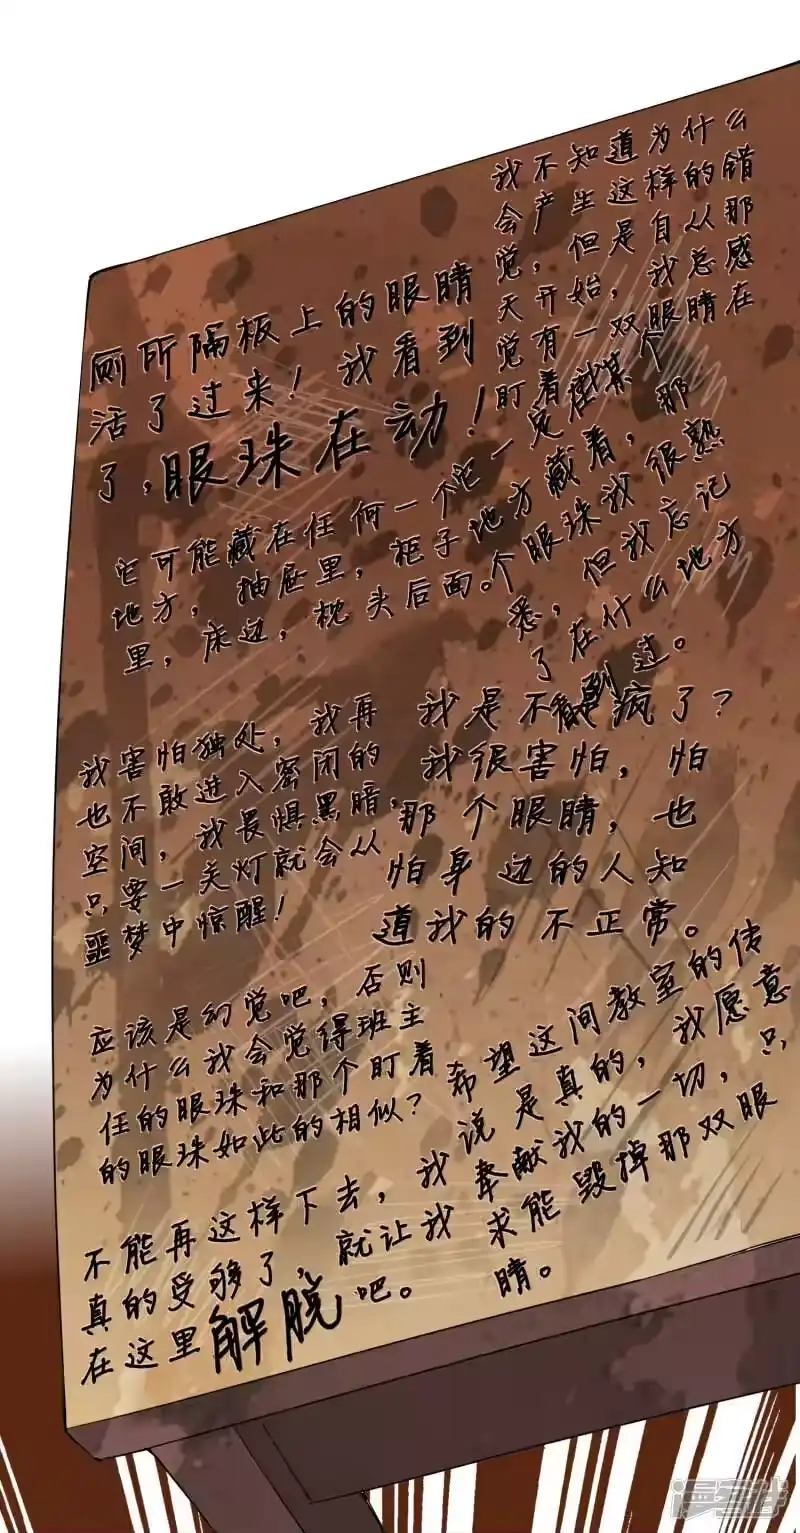 我不知道为什么
会产生这样的错
觉，但是自从那
天开始，我总感
觉有一双眼睛在
盯着我
厕所隔板上的眼睛
活了过来！我看到
了，眼珠在动！
它可能藏在任何一个
地方，抽屉里，柜子
里，床边，枕头后面。
它一定在某个
地方藏着，那
个眼珠我很熟
悉，但我忘记
了在什么地方
看到过。
我害怕独处，我再
也不敢进入密闭的
空间，我畏惧黑暗，
只要一关灯就会从
噩梦中惊醒！
我是不是疯了？
我很害怕，怕
那个眼睛，也
怕身边的人知
道我的不正常。
应该是幻觉吧，否则
为什么我会觉得班主
任的眼珠和那个盯着
的眼珠如此的相似？
不能再这样下去，我
真的受够了，就让我
在这里解脱吧。
希望这间教室的传
说是真的，我愿意
奉献我的一切，只
求能毁掉那双眼
睛。
漫客栈